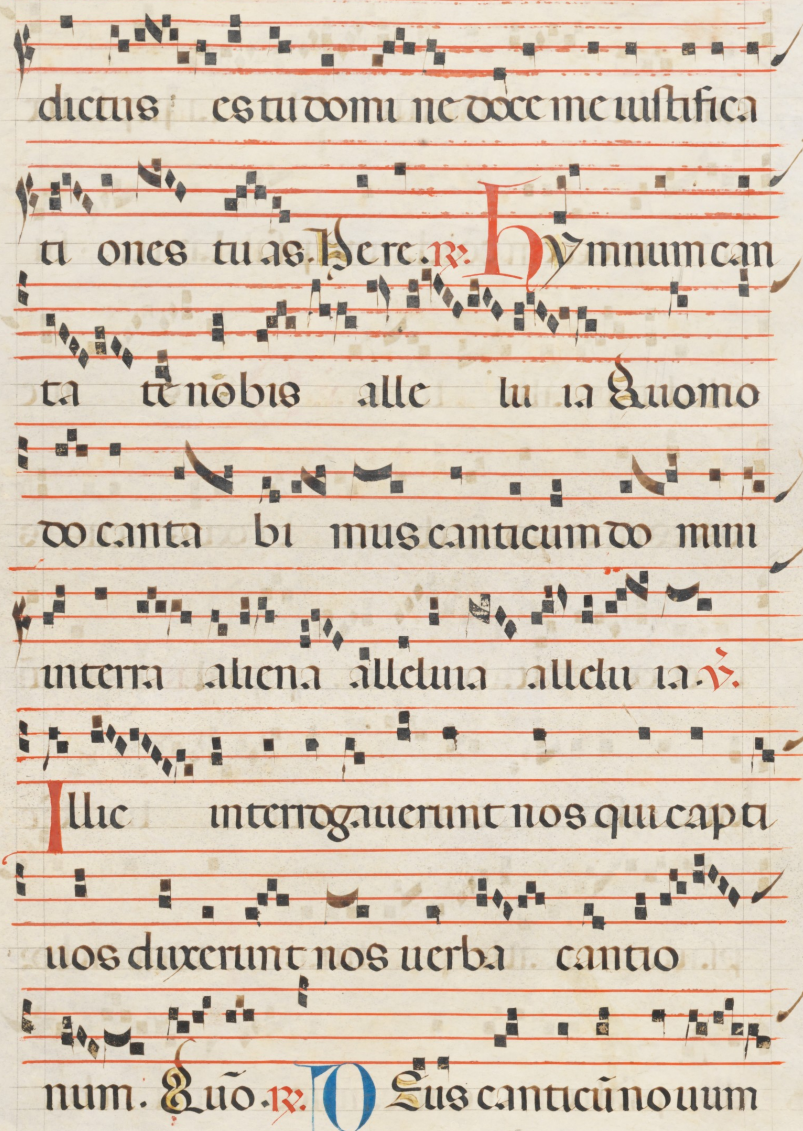 dictus es tu domi ne doce me iustifica
ti ones tu as. Here. R. Hymnum can
ta te nobis alle lu ia Quomo
do canta bi mus canticum do mini
in terra aliena alleluia allelu ia. V.
Illic interrogauerunt nos qui capti
uos duxerunt nos uerba cantio
num. Quō. R. Deus canticū nouum